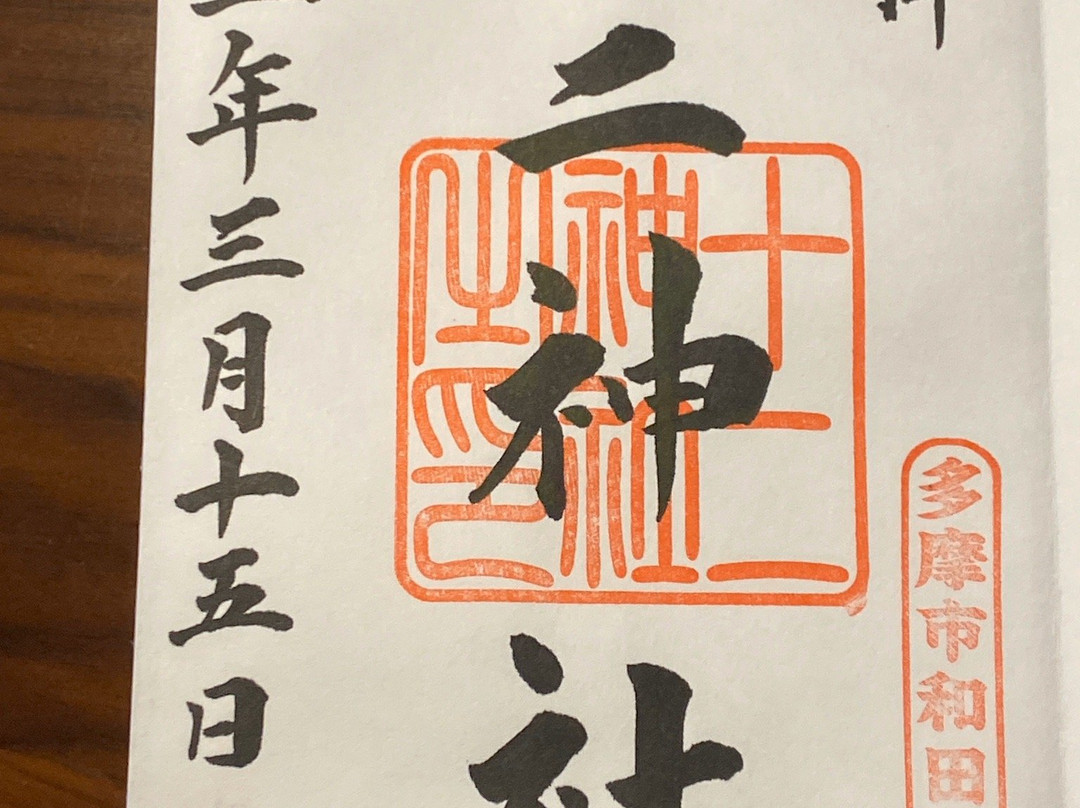 多摩市和田
二神社
十二
神社
之印
年三月十五日